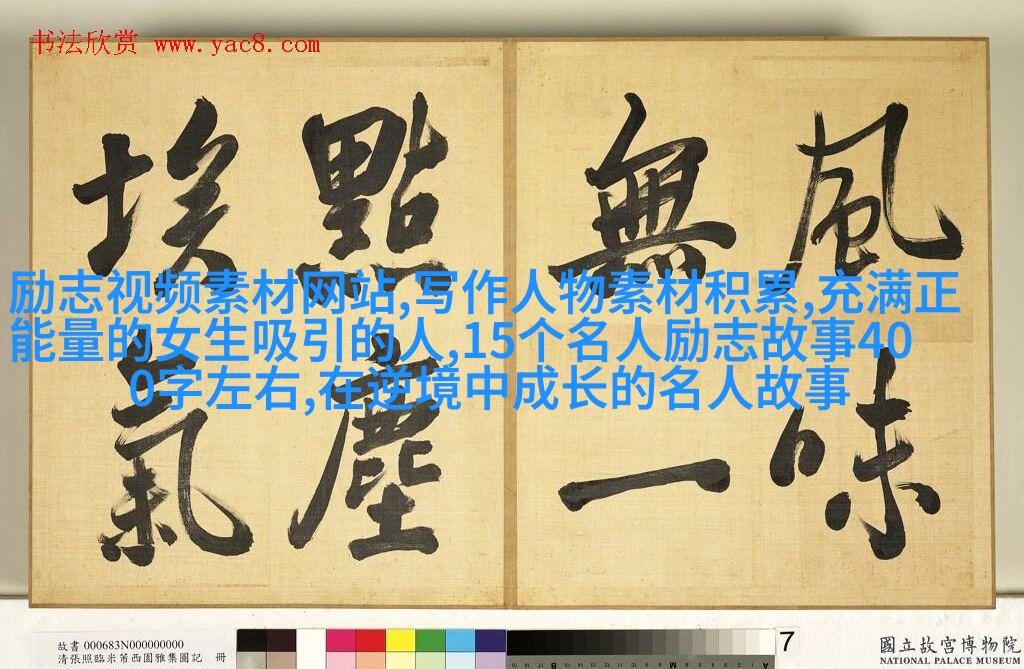 书法欣赏 www.yac8.com
風味
無一
點塵
埃氣
励志视频素材网站,写作人物素材积累,充满正
能量的女生吸引的人,15个名人励志故事40
0字左右,在逆境中成长的名人故事
故書000683N000000000
清張照臨米芾西園雅集圖記 冊
7
國立故宮博物院
NATIONAL PALACE MUSEUM